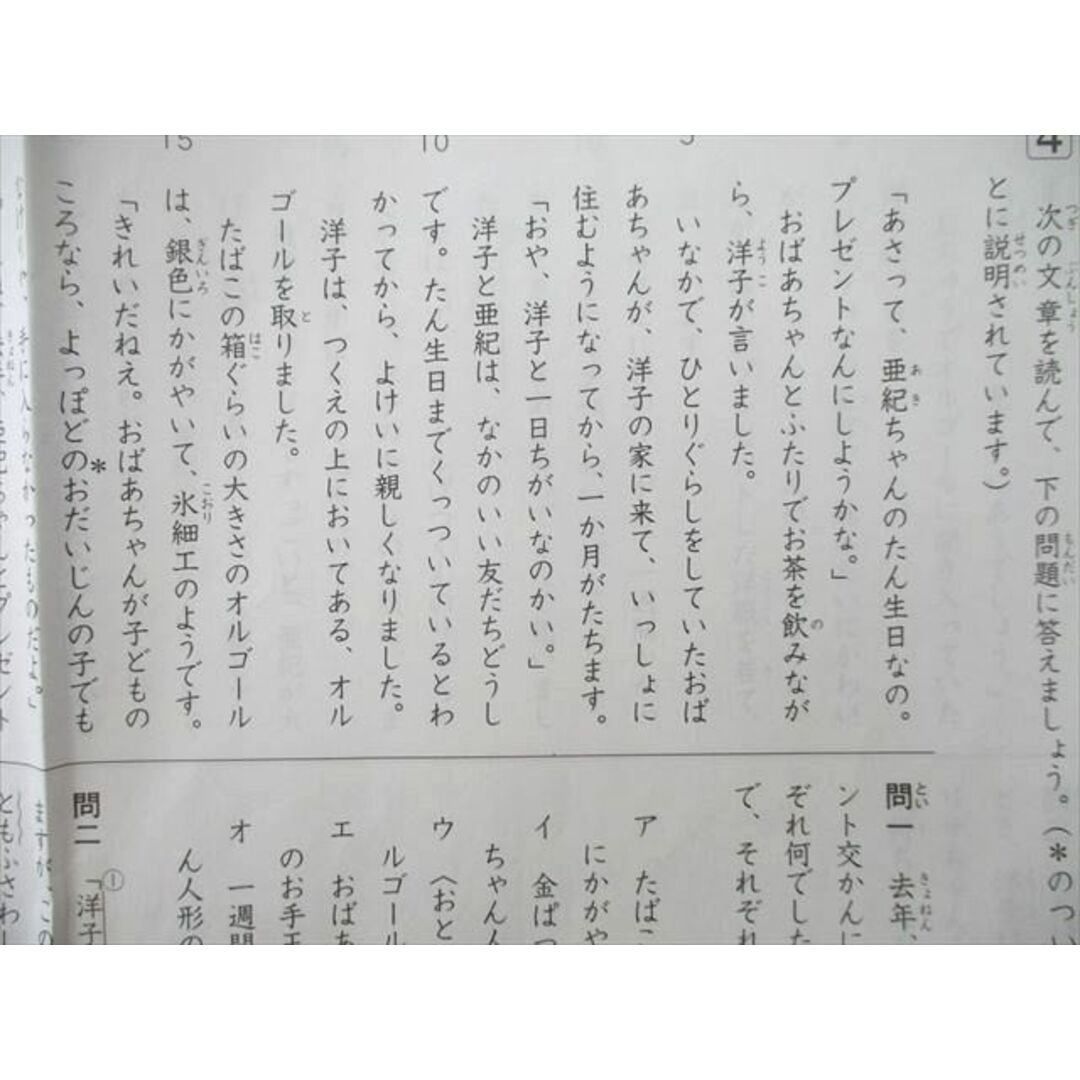 4
次の文章を読んで、下の問題に答えましょう。（＊のつい
とに説明されています。）
「あさって、亜紀ちゃんのたん生日なの。
プレゼントなんにしようかな。」
おばあちゃんとふたりでお茶を飲みなが
ら、洋子が言いました。
いなかで、ひとりぐらしをしていたおば
あちゃんが、洋子の家に来て、いっしょに
住むようになってから、一か月がたちます。
「おや、洋子と一日ちがいなのかい。」
洋子と亜紀は、なかのいい友だちどうし
です。たん生日までくっついているとわ
かってから、よけいに親しくなりました。
洋子は、つくえの上においてある、オル
ゴールを取りました。
たばこの箱ぐらいの大きさのオルゴール
は、銀色にかがやいて、氷細工のようです。
「きれいだねえ。おばあちゃんが子どもの
ころなら、よっぽどの＊おだいじんの子でも
5
10
15
手に入らなかったものだよ。」
問一 去年、
ント交かんに
ぞれ何でした
で、それぞれ
ア たばこ
にかがや
イ 金ぱつ
ちゃん人
ウ 〈おと
ルゴール
エ おばあ
のお手玉
オ 一週間
ん人形の
問二 ①「洋子
ますが、この
ともふさわし